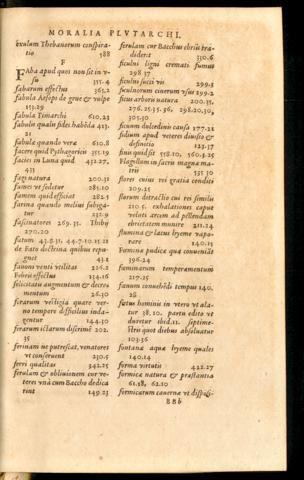 MORALIA PLVTARCHI.
exulum Thebanorum conspiratio 588
F
FAba apud quos non sit in vsu 355.4
fabarum effectus 365.2
fabula Aesopi de grue & vulpe 153.29
fabula Timarchi 610.23
fabulis qualis fides habēda 423.21
fabulæ quando veræ 610.8
facere quid Pythagoricis 355.19
facies in Luna quid 432.27, 433
fagi natura 200.31
fames vt soletur 285.10
famem quid efficiat 282.5
farina quando melius subigatur 232.9
fascinatores 269.35. Thibij 270.20
fatum 43.8.31. 44.7.10.15.21
de Fato doctrina quibus repugnet 43.2
fauoni venti vtilitas 226.2
Febris effectus 134.16
felicitatis augmentum & decrementum 26.30
ferarum vestigia quare verno tempore difficilius indagentur 144.30
ferarum ictarum discrimē 202.35
ferinam ne putrescat, venatores vt conseruent 230.5
ferri qualitas 342.25
ferulam & obliuionem cur veteres vnà cum Baccho dedicarint 149.23
ferulam cur Bacchus ebriis tradiderit 330.6
ficulni ligni cremati fumus 298.37
ficulni succi vis 299.3
ficulnorum cinerum vsus 299.2
ficus arboris natura 200.35. 276.25.35.36. 298.20.30, 305.30
ficuum dulcedinis causa 177.21
fidium apud veteres diuisio & definitio 123.37
finis quid sit 558.10, 560.5.25
Flagellum in sacris magna matris 535.30
flores cuius rei gratia conditi 209.25
florum detractio cui rei similis 210.5. exhalationes caput velati arcem ad pellendam ebrietatem munire 211.24
flumina & lacus hyeme vaporare 140.15
Fœmina pudica quæ conueniāt 396.24
fœminarum temperamentum 217.25
fœnum conuehēdi tempus 140.28
fœtus hominis in vtero vt alatur 38.10. partu edito vt duretur ibid.11. septimestris quot diebus absoluatur 103.36
fontana aquæ hyeme quales 140.14
forma virtutis 422.27
formicæ natura & præstantia 61.38, 62.10
formicarum cauernæ vt disposi-
BBb